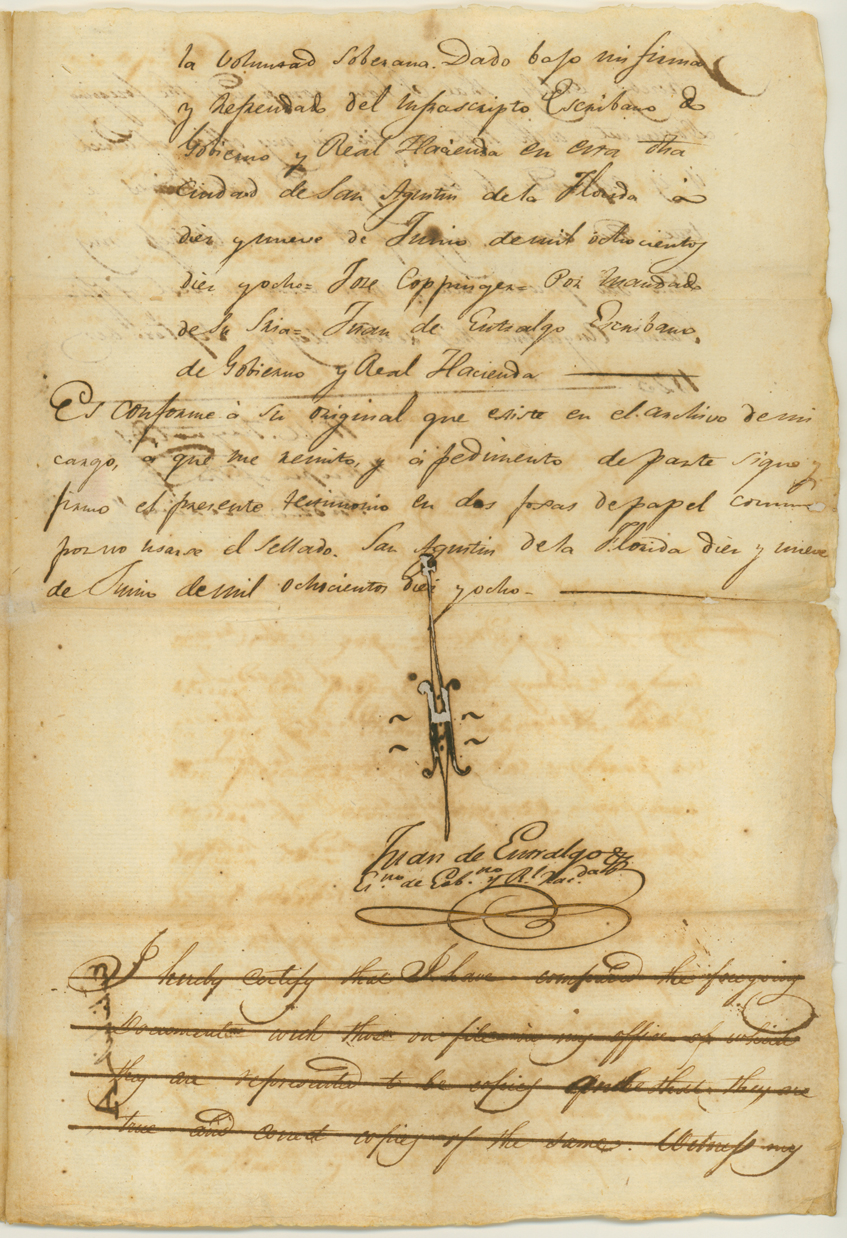 la voluntad Soberana. Dado bajo mi firma
y Refrendado del infrascripto Escribano de
Gobierno y Real Hacienda en esta dha
Ciudad de San Agustin de la Florida à
diez y nueve de Junio de mil ochocientos
diez y ocho = Jose Coppinger = Por mandado
de Su Sria = Juan de Entralgo Escribano,
de Gobierno y Real Hacienda
Es conforme à su original que existe en el archivo de mi
cargo, à que me remito, y à pedimento de parte signo y
firmo el presente testimonio en dos foxas de papel comun
por no usarse el Sellado. San Agustin de la Florida diez y nueve
de Junio de mil ochocientos diez y ocho -
Juan de Entralgo
Es.no de Gob.no y Rl Hac.da
I hereby certify that I have compared the foregoing
Documents with those on file in my office of which
they are represented to be copies and that they are
true and correct copies of the same. Witness my